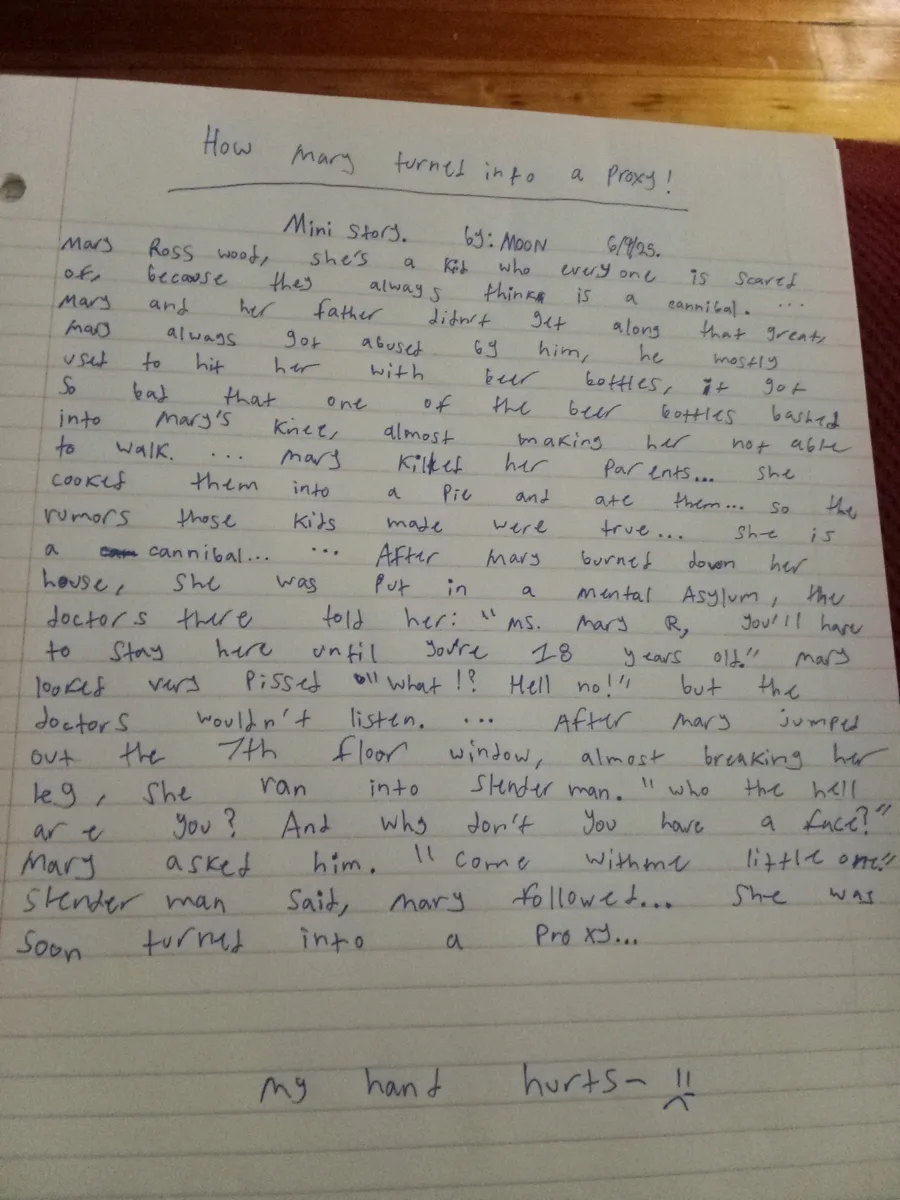 How Mary turned into a Proxy!
Mini story. by: MOON 6/9/25.
Mary Ross wood, she's a kid who everyone is scared
of, because they always thinks is a cannibal. ...
Mary and her father didn't get along that great,
Mary always got abused by him, he mostly
used to hit her with beer bottles, it got
so bad that one of the beer bottles bashed
into Mary's Knee, almost making her not able
to walk. ... Mary killed her parents... she
cooked them into a pie and ate them... so the
rumors those kids made were true... she is
a cannibal... ... After Mary burned down her
house, she was put in a mental Asylum, the
doctors there told her: "Ms. Mary R, you'll have
to stay here until you're 18 years old." Mary
looked very pissed "what!? Hell no!" but the
doctors wouldn't listen. ... After Mary jumped
out the 7th floor window, almost breaking her
leg, she ran into Slender man. "who the hell
are you? And why don't you have a face?"
Mary asked him. "come withme little one."
Slender man said, Mary followed... she was
soon turned into a Proxy...
My hand hurts-